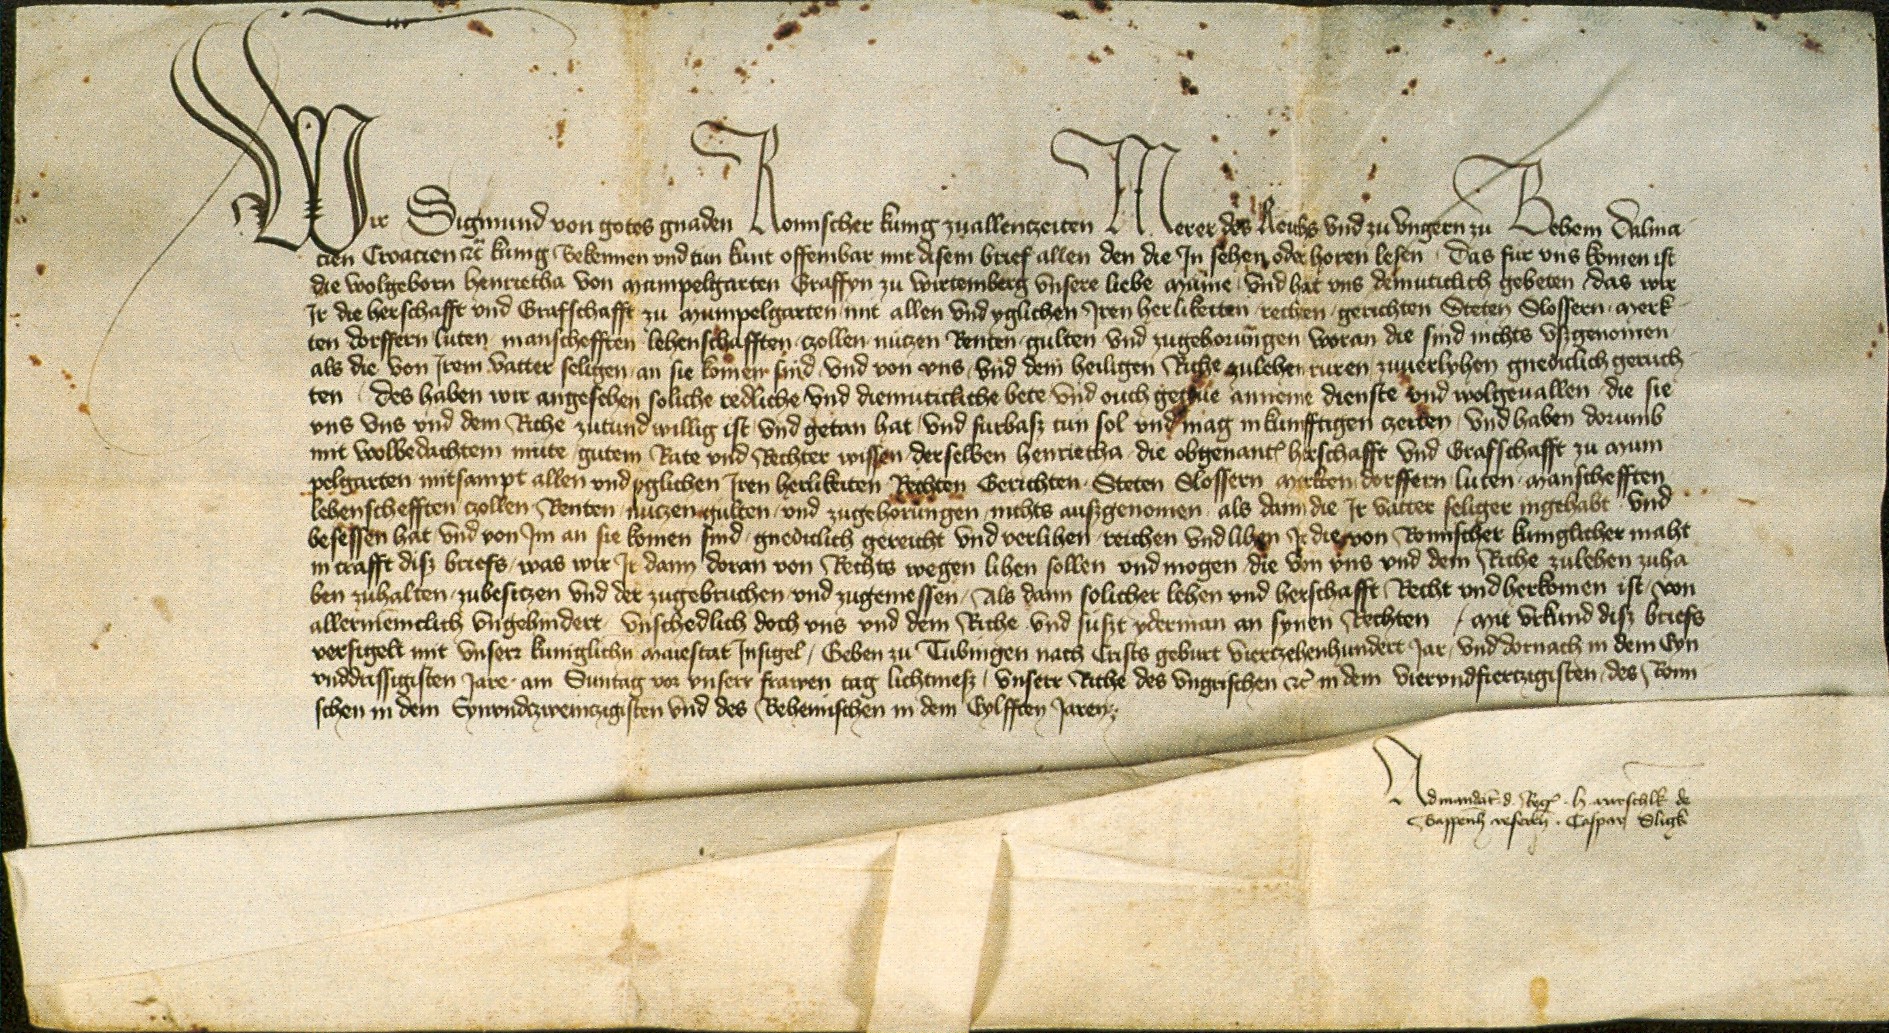 Wir Sigmund von gotes gnaden Romischer kunig zuallentzeiten Merer des Reichs und zu Ungern zu Behem Dalma
cien Croacien etc kunig Bekennen und tun kunt offembar mit disem brief allen den die In sehen oder horen lesen Das fur uns komen ist
die wolgeborn henrietha von Mumpelgarten Graffyn zu Wirtemberg unsere liebe Mume und hat uns demuticlich gebeten das wir
Ir die herschafft und Grafschafft zu Mumpelgarten mit allen und yglichen Iren herlikeiten rechten gerichten Steten Slossern merk
ten dorffern luten manschefften lehenschafften czollen nutzen Renten gulten und zugehorungen woran die sind nichts uszgenomen
als die von Irem vatter seligen an sie komen sind und von uns und dem heiligen Riche zulehen ruren zuuerlyhen gnediclich geruch
ten Des haben wir angesehen soliche redliche und diemuticliche bete und ouch getrue anneme dienste und wolgeuallen die sie
uns und dem Riche zutund willig ist und getan hat und furbasz tun sol und mag in kunfftigen czeiten und haben dorumb
mit wolbedachtem mute gutem Rate und Rechter wissen derselben henrietha die obgenant herschafft und Grafschafft zu Mum
pelgarten mitsampt allen und yglichen Iren herlikeiten Rechten Gerichten Steten Slossern merkten dorffern luten manschefften
lehenschefften czollen Renten nutzen gulten und zugehorungen nichts auszgenomen als dann die Ir vatter seliger ingehabt und
besessen hat und von Im an sie komen sind gnediclich gereicht und verlihen reichen und lihen Ir die von Romischer kuniglicher maht
in crafft disz briefs was wir Ir dann doran von Rechts wegen lihen sollen und mogen die von uns und dem Riche zulehen zuha
ben zuhalten zubesitzen und der zugebruchen und zugeniessen Als dann solicher lehen und herschafft Recht und herkomen ist von
allermeniclich ungehindert unschedlich doch uns und dem Riche und suszt yderman an synen Rechten Mit urkund disz briefs
versigelt mit unserr kuniglichn Maiestat Insigel Geben zu Tubingen nach Crists geburt viertzehenhundert Jar und dornach in dem Eyn
unddrissigisten Jare am Suntag vor unserr frawen tag lichtmesz unserr Riche des Ungrischen etc in dem vierundfiertzigisten des Romi
schen in dem Eynundczweintzigisten und des Behemischen in dem Eylfften Jaren
Ad mandat d Reg H marschlk de
Bappenh referen Caspar Sligk